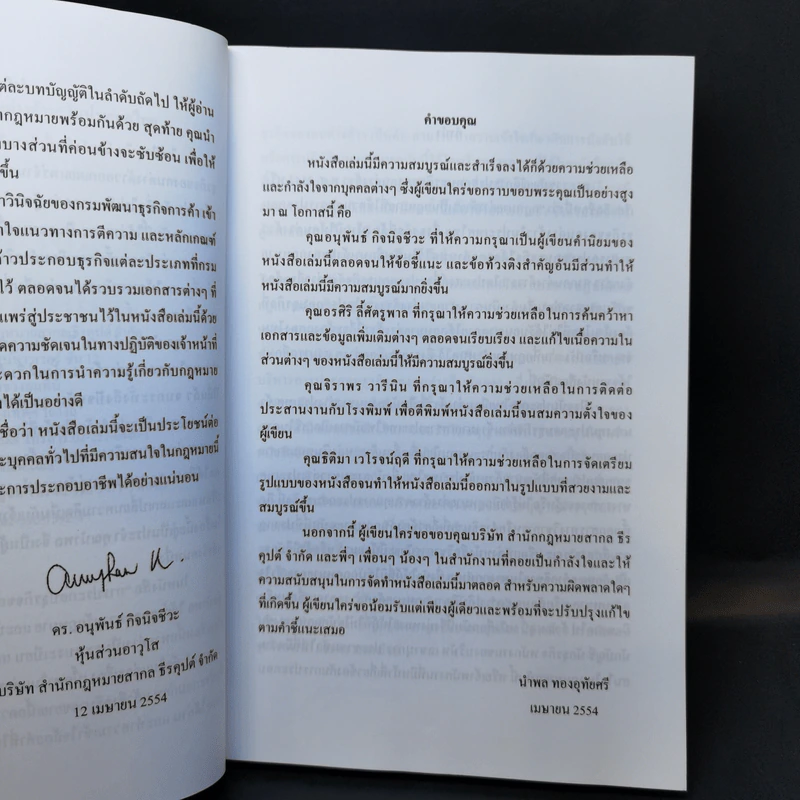 ต่ละบทบัญญัติในลำดับถัดไป ให้ผู้อ่าน
ากฎหมายพร้อมกันด้วย สุดท้าย คุณนำ
บางส่วนที่ค่อนข้างจะซับซ้อน เพื่อให้
ขึ้น
าวินิจฉัยของกรมพัฒนาธุรกิจการค้า เข้า
าใจแนวทางการตีความ และหลักเกณฑ์
ด้าวประกอบธุรกิจแต่ละประเภทที่กรม
ไว้ ตลอดจนได้รวบรวมเอกสารต่างๆ ที่
แพร่สู่ประชาชนไว้ในหนังสือเล่มนี้ด้วย
ดความชัดเจนในทางปฏิบัติของเจ้าหน้าที่
ะดวกในการนำความรู้เกี่ยวกับกฎหมาย
าได้เป็นอย่างดี
ชื่อว่า หนังสือเล่มนี้จะเป็นประโยชน์ต่อ
ะบุคคลทั่วไปที่มีความสนใจในกฎหมายนี้
ะการประกอบอาชีพได้อย่างแน่นอน
ดร. อนุพันธ์ กิจนิจชีวะ
หุ้นส่วนอาวุโส
บริษัท สำนักกฎหมายสากล ธีรคุปต์ จำกัด
12 เมษายน 2554
คำขอบคุณ
หนังสือเล่มนี้มีความสมบูรณ์และสำเร็จลงได้ก็ด้วยความช่วยเหลือ
และกำลังใจจากบุคคลต่างๆ ซึ่งผู้เขียนใคร่ขอกราบขอบพระคุณเป็นอย่างสูง
มา ณ โอกาสนี้ คือ
คุณอนุพันธ์ กิจนิจชีวะ ที่ให้ความกรุณาเป็นผู้เขียนคำนิยมของ
หนังสือเล่มนี้ตลอดจนให้ข้อชี้แนะ และข้อท้วงติงสำคัญอันมีส่วนทำให้
หนังสือเล่มนี้มีความสมบูรณ์มากยิ่งขึ้น
คุณอรศิริ ลี้ศัตรูพาล ที่กรุณาให้ความช่วยเหลือในการค้นคว้าหา
เอกสารและข้อมูลเพิ่มเติมต่างๆ ตลอดจนเรียบเรียง และแก้ไขเนื้อความใน
ส่วนต่างๆ ของหนังสือเล่มนี้ให้มีความสมบูรณ์ยิ่งขึ้น
คุณจิราพร วารีนิน ที่กรุณาให้ความช่วยเหลือในการติดต่อ
ประสานงานกับโรงพิมพ์ เพื่อตีพิมพ์หนังสือเล่มนี้จนสมความตั้งใจของ
ผู้เขียน
คุณธิติมา เวโรจน์ฤดี ที่กรุณาให้ความช่วยเหลือในการจัดเตรียม
รูปแบบของหนังสือจนทำให้หนังสือเล่มนี้ออกมาในรูปแบบที่สวยงามและ
สมบูรณ์ขึ้น
นอกจากนี้ ผู้เขียนใคร่ขอขอบคุณบริษัท สำนักกฎหมายสากล ธีร
คุปต์ จำกัด และพี่ๆ เพื่อนๆ น้องๆ ในสำนักงานที่คอยเป็นกำลังใจและให้
ความสนับสนุนในการจัดทำหนังสือเล่มนี้มาตลอด สำหรับความผิดพลาดใดๆ
ที่เกิดขึ้น ผู้เขียนใคร่ขอน้อมรับแต่เพียงผู้เดียวและพร้อมที่จะปรับปรุงแก้ไข
ตามคำชี้แนะเสมอ
นำพล ทองอุทัยศรี
เมษายน 2554